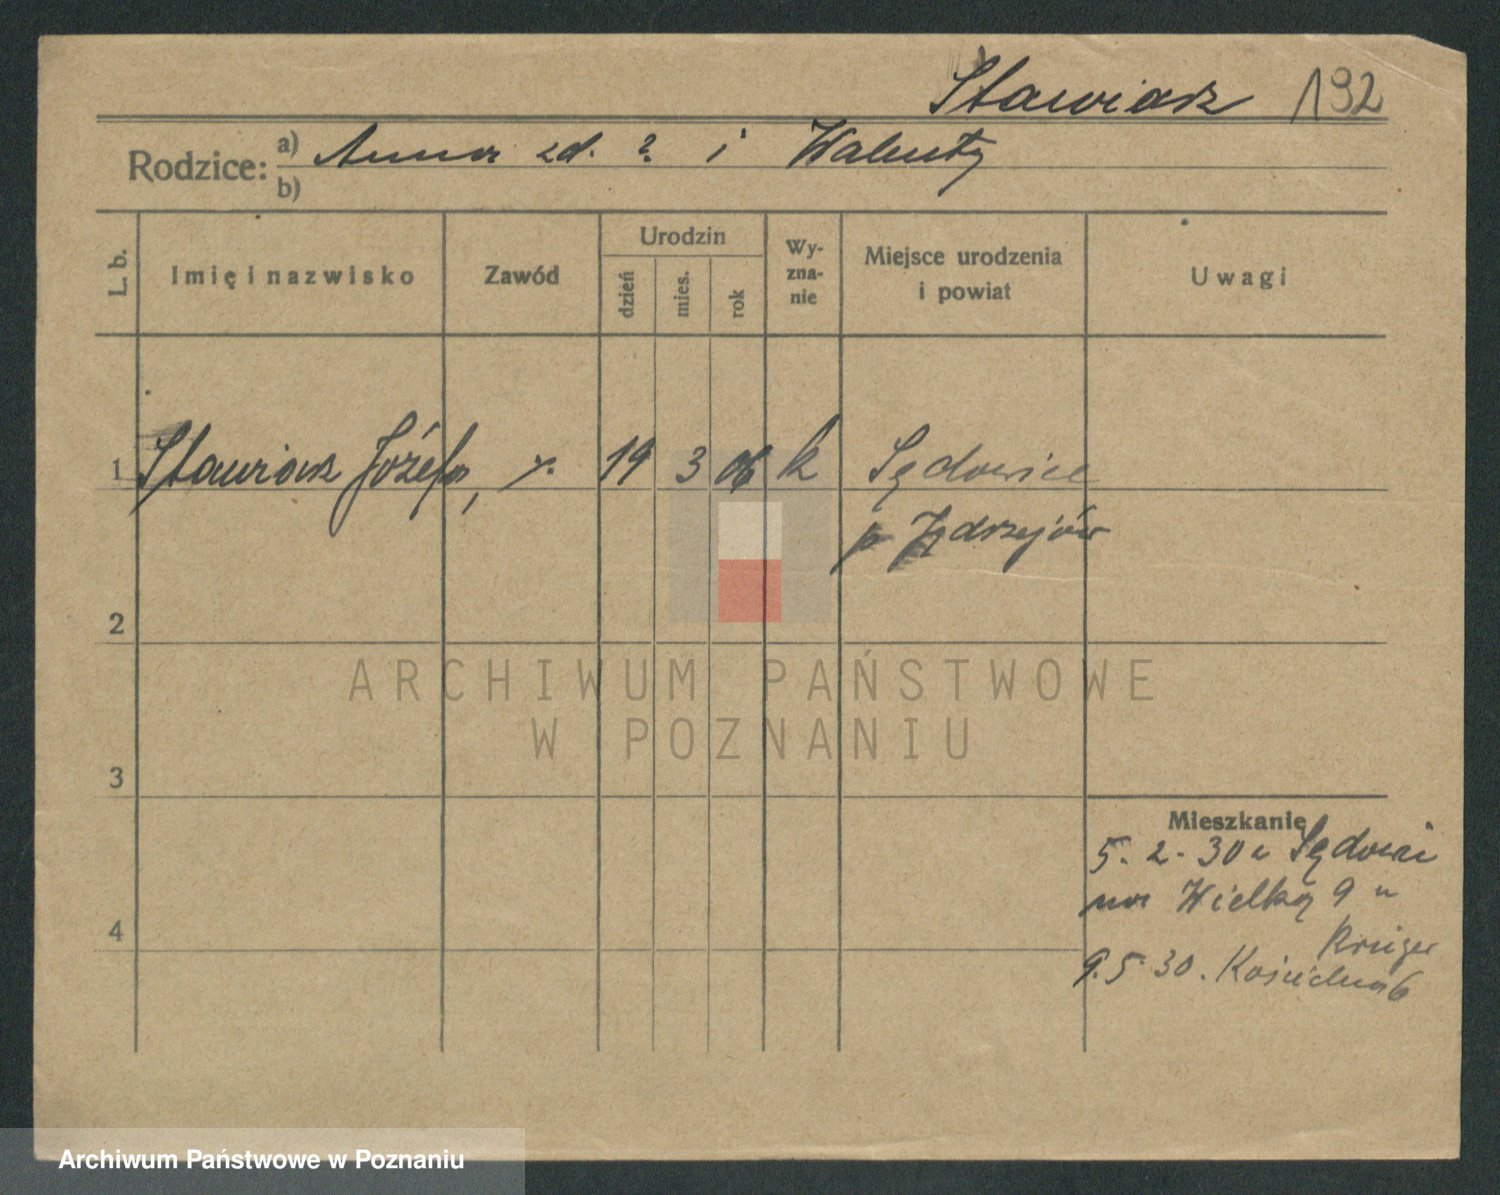 Stawiarz 192
Rodzice: a) Anna zd. ? i Walenty
b)
L. b.
Imię i nazwisko
Zawód
Urodzin
dzień
mies.
rok
Wy-
zna-
nie
Miejsce urodzenia
i powiat
Uwagi
1 Stawiarz Józefa, 19 3 06 k Sędowice
p Jędrzejów
2
3
4
Mieszkanie
5. 2. 30 z Sędowi
na Wielką 9 u
Krüger
9. 5. 30.
ARCHIWUM PAŃSTWOWE
W POZNANIU
Archiwum Państwowe w Poznaniu